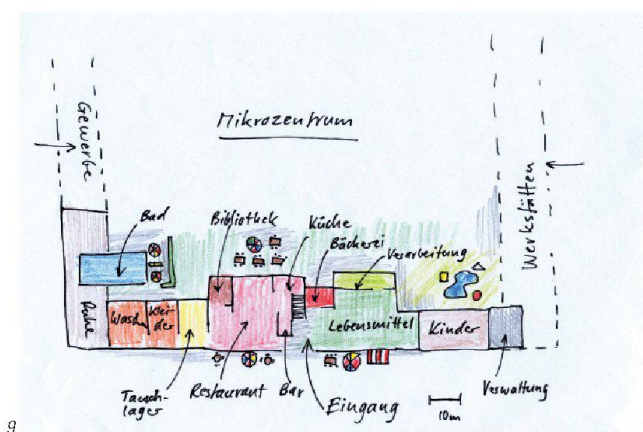 Mikrozentrum
Gewerbe
Werkstätten
Bad
Bibliothek
Küche
Bäckerei
Verarbeitung
Ruhe
Wasch
Lebensmittel
Kinder
Tausch-
lager
Restaurant
Bar
Eingang
10m
Verwaltung
g